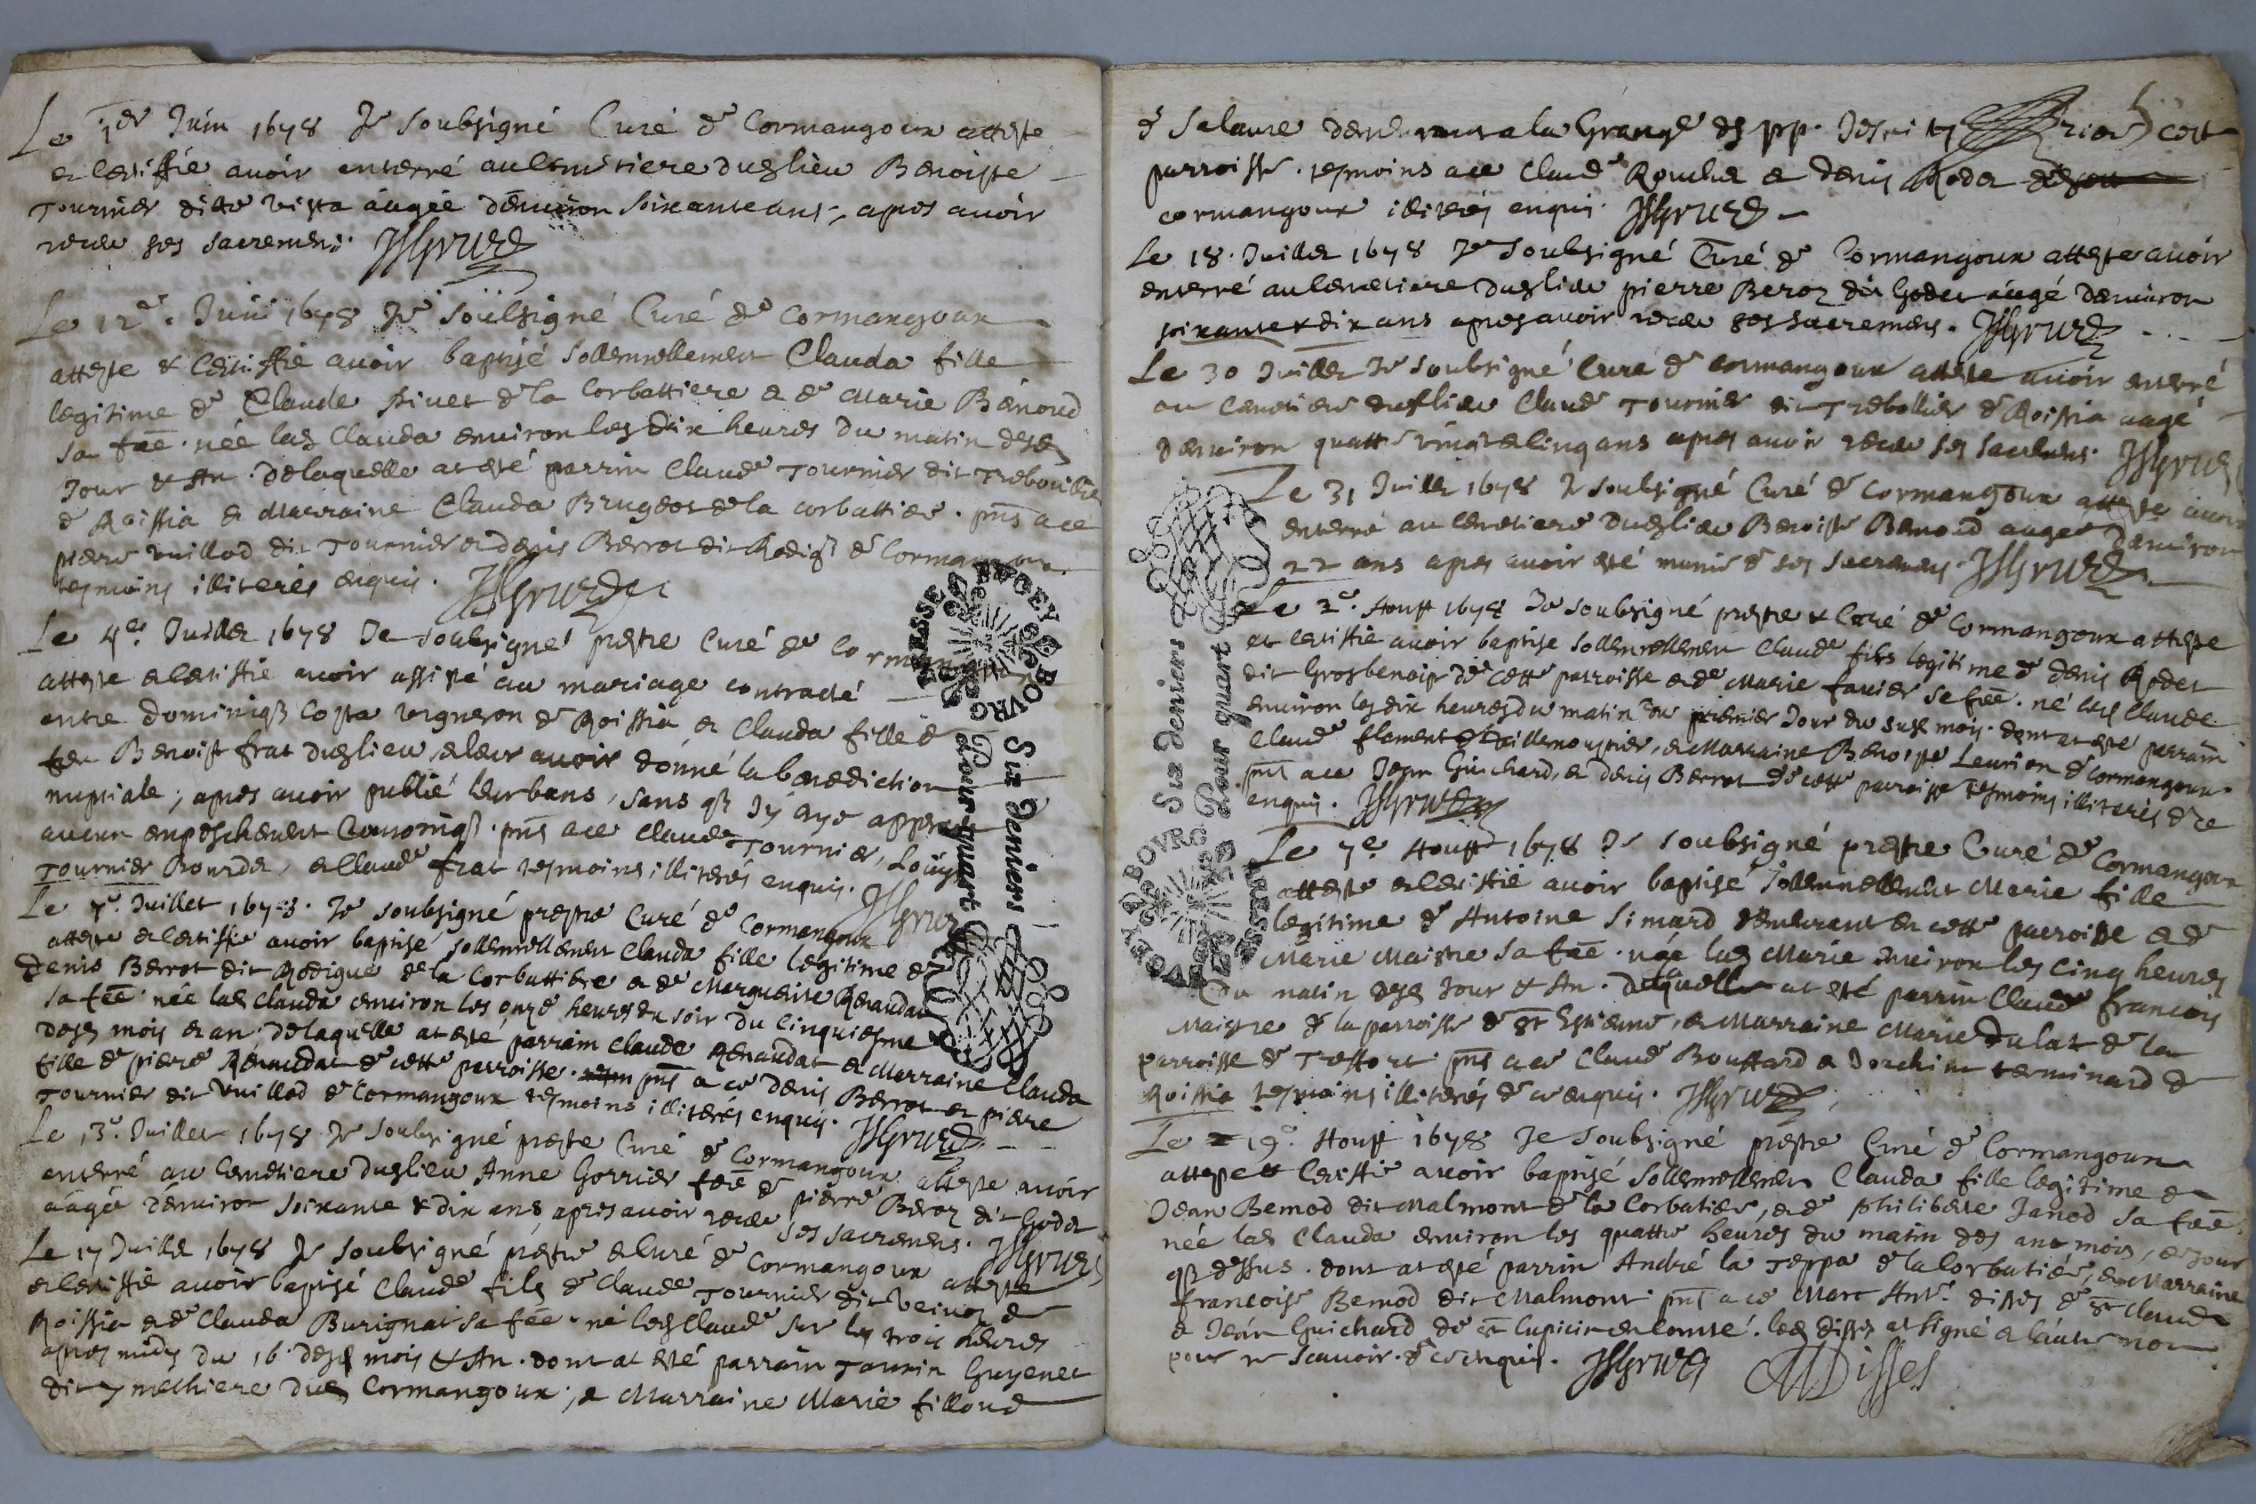 Le 1er Juin 1678 Je soubsigné Curé de Cormangoux atteste
et certiffie avoir enterré au Cemetiere dudlieu Benoiste
Tournier ditte vista áagée denviron soixante ans, apres avoir
receu ses sacremens. JSgrved
Le 12e. Juin 1678 Je soubsigné Curé de Cormangoux
atteste & Certiffie avoir baptisé sollemnellement Clauda fille
legitime de Claude pivet de la Corbattiere & de Marie Benoud
sa fée. née lad Clauda environ les dix heures du matin desd
Jour & An. de laquelle at esté parrin Claude Tournier dit Trebouillier
de Roissia et Marraine Clauda Brugeot de la corbattiere. pnts a ce
pierre vuillod dit Tournier et denis Berrot dit Rodigue de Cormangoux
tesmoins illiterés enquis. JSgrved
Le 4e. Juillet 1678 Je soubsigné prestre Curé de Cormangoux
atteste et certiffie avoir assisté au mariage contracté
entre dominique Costa vigneron de Roissia et Clauda fille de
feu Benoist frat dudlieu, et leur avoir donné la benediction
nuptiale, apres avoir publié leurs bans, sans que Jy aye apperceu
aucun empeschement Canonique. pnts a ce Claude Tournier, Louys
Tournier Rourder, et Claude frat tesmoins illiterés enquis. JSgrved
Le 7e. Juillet 1678. Je soubsigné prestre Curé de Cormangoux
atteste et certiffie avoir baptisé sollemnellement Clauda fille legitime de
Denis Berrot dit Rodigue de la Corbattiere et de Marguerite Renaudat
sa fée. née lad Clauda environ les onze heures du soir du cinquiesme
desd mois et an. de laquelle at esté parrain Claude Renaudat et Marraine Clauda
fille de piere Renaudat de cette parroisse. pnts a ce denis Berrot et piere
Tournier dit vuillod de Cormangoux tesmoins illiterés enquis. JSgrved
Le 13e. Juillet 1678 Je soubsigné prestre Curé de Cormangoux atteste avoir
enterré au Cemetiere dudlieu Anne Gorrier fée de pierre Beroz dit Godet
áagée denviron soixante & dix ans, apres avoir receu ses sacremens. JSgrved
Le 17 Juillet 1678 Je soubsigné prestre et Curé de Cormangoux atteste
et certiffie avoir baptisé Claude fils de Claude Tournier dit de
Roissia et de Clauda Burignat sa fée. né led Claude sur les trois heures
apres midy du 16 desd mois & An. dont at esté parrain Taurin Guyenet
dit methiere dud Cormangoux, et Marraine Marie filloud
de Salavre demeurant a la Grange des pp. Jesuites rière cett
parroisse. tesmoins a ce Claude Roucher et denis Rodet
cormangoux illiterés enquis. JSgrved
Le 18. Juillet 1678 Je soubsigné Curé de Cormangoux atteste avoir
enterré au Cemetiere dudlieu pierre Beroz dit Godet áagé denviron
soixante & dix ans apres avoir receu ses sacremens. JSgrved
Le 30 Juillet Je soubsigné Curé de cormangoux atteste avoir enterré
au Cemetiere dudlieu Claude Tournier dit Trebollier de Roissia aagé
denviron quattre vingt et cinq ans apres avoir receu ses sacremens. JSgrved
Le 31 Juillet 1678 Je soubsigné Curé de Cormangoux atteste avoir
enterré au Cemetiere dudlieu Benoiste Benoud aagée denviron
22 ans apres avoir esté munie de ses sacremens. JSgrved
Le 2e. Aoust 1678 Je soubsigné prestre & Curé de Cormangoux atteste
et certiffie avoir baptise sollemnellement Claude fils legitime de denis Rodet
dit Grosbenoist de cette parroisse et de Marie favier sa fée. né led Claude
environ les dix heures du matin du premier Jour du susd mois. dont at esté parrain
Claude flament de villemoustier, et Marraine Benoiste Leurion de Cormangoux.
pnts a ce Jean Guichard, et denis Berrot de cette parroisse tesmoins illiterés de ce
enquis. JSgrved
Le 7e. Aoust 1678 Je soubsigné prestre Curé de Cormangoux
atteste et certiffie avoir baptisé sollemnellement Marie fille
legitime de Antoine Simard demeurant en cette parroisse et de
Marie Maistre sa fée. née lad Marie environ les cinq heures
Du matin desd Jour & An. de laquelle at esté parrin Claude francois
Maistre de la parroisse de St Estienne, et Marraine Marie Dulat de la
parroisse de Treffort pnts a ce Claude Bouffard et Joachim Terminard de
Roissia tesmoins illiterés de ce enquis. JSgrved
Le 19e. Aoust 1678 Je soubsigné prestre Curé de Cormangoux
atteste et Certiffie avoir baptisé sollemnellement Clauda fille legitime de
Jean Bemod dit Malmont de la Corbatiere, et de philiberte Janod sa fée,
née lad Clauda environ les quattre heures du matin des an mois, et Jour
que dessus. dont at esté parrin André la Teppa de la Corbatiere, et Marraine
francoise Bemod dit Malmont. pnts a ce Marc Ante. disses de St Claude
et Jean Guichard de St Lupicin en Comté. led disses at signé et l'autre non
pour ne scavoir. de ce enquis. JSgrved MDisses
BRESSE BVGEY BOVRG
Six deniers
Pour quart
Six deniers
Pour quart
BOVRG BRESSE BVGEY